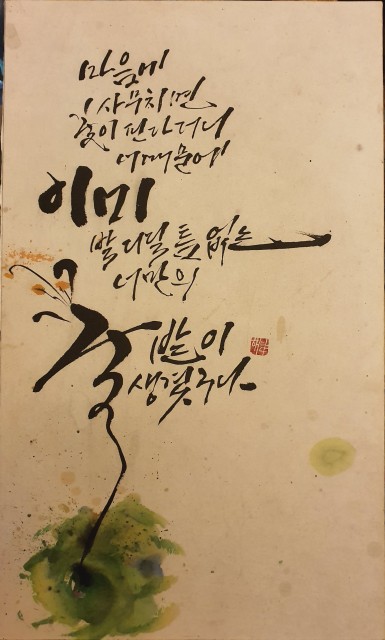 마음에
사무치면
꽃이 핀다더니
너때문에
이미
발 디딜 틈 없는
너만의
꽃 밭이
생겼구나